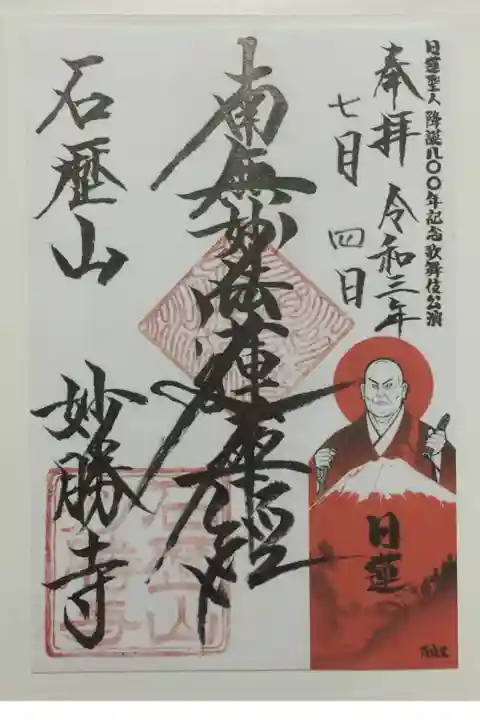 日蓮聖人降誕八〇〇年記念歌舞伎公演
奉拝 令和三年
七月 四日
南無妙法蓮華経
石歷山 妙勝寺
日蓮
石歴山
妙勝寺